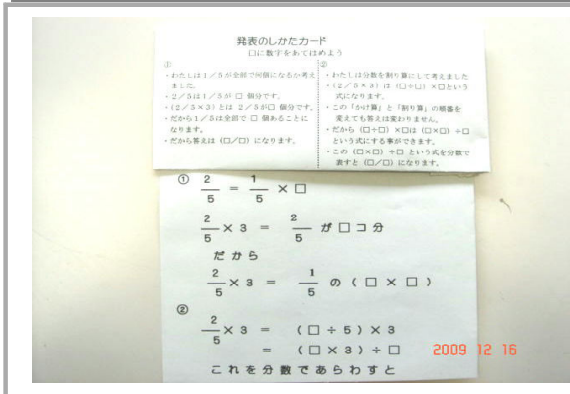 発表のしかたカード
□に数字をあてはめよう
①
・わたしは1/5が全部で何個になるか考え
ました。
・2/5は1/5が □ 個分です。
・(2/5×3)とは 2/5が□ 個分です。
・だから1/5は全部で □ 個あることに
なります。
・だから答えは (□/□) になります。
②
・わたしは分数を割り算にして考えました
・(2/5×3) は (□÷□) ×□という
式になります。
・この「かけ算」と「割り算」の順番を
変えても答えは変わりません。
・だから (□÷□) ×□は (□×□) ÷□
という式にする事ができます。
・この (□×□) ÷□ という式を分数で
表すと (□/□) になります。
① 2/5 = 1/5 × □
2/5 × 3 = 2/5 が □ コ分
だから
2/5 × 3 = 1/5 の ( □ × □ )
②
2/5 × 3 = ( □ ÷ 5 ) × 3
= ( □ × 3 ) ÷ □
これを分数であらわすと
2009 12 16